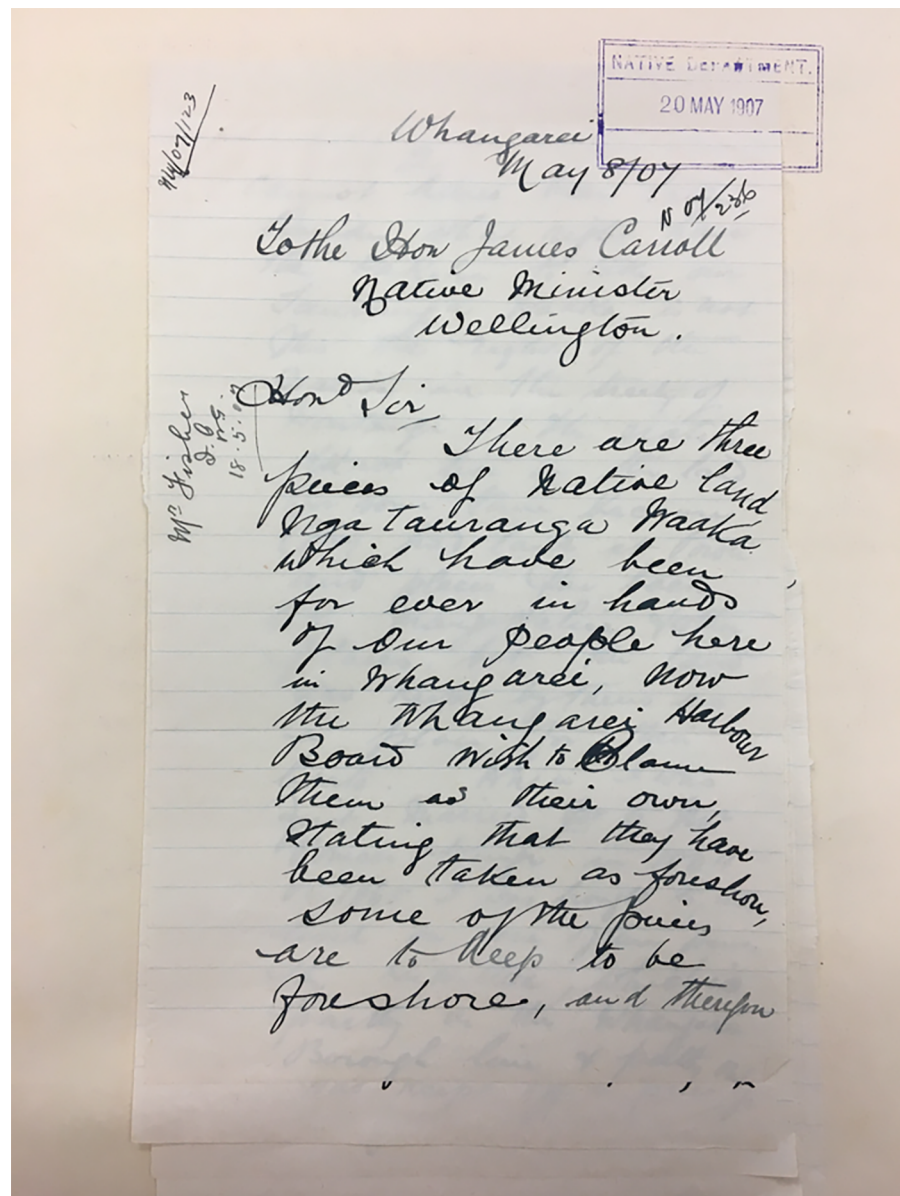 NATIVE DEPARTMENT.
20 MAY 1907
Whangarei
May 8/07
N 07/236
To the Hon James Carroll
Native Minister
Wellington.
Hond Sir
There are three
pieces of Native land
Nga Tauranga Waaka
which have been
for ever in hands
of Our people here
in Whangarei, Now
the Whangarei Harbour
Board wish to Clame
them as their own,
Stating that they have
been taken as foreshore,
some of the pieces
are to deep to be
foreshore, and therefore
Mr Fisher
18.5.07